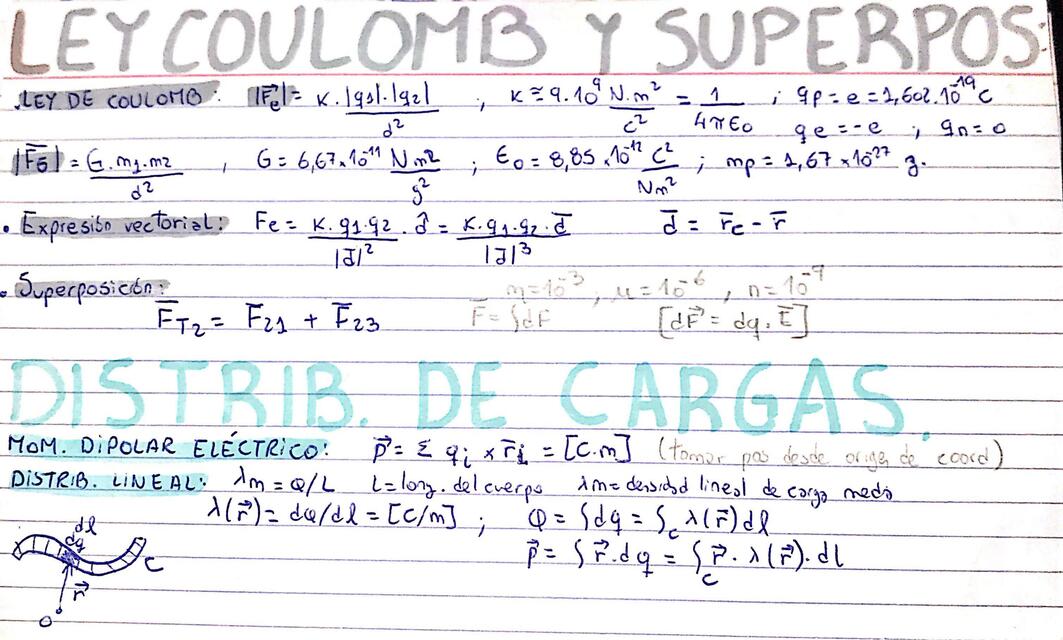 LEY COULOMB Y SUPERPOS.
. LEY DE COULOMB: |F⃗e| = K.|q1|.|q2| / d² , K ≅ 9.10⁹ N.m²/C² = 1/4πЄ0 ; qp = e = 1,602.10⁻¹⁹ C
qe = -e ; qn = 0
|F̅G| = G.m1.m2 / d² , G = 6,67×10⁻¹¹ Nm²/g² ; Є0 = 8,85×10⁻¹² C²/Nm² ; mp = 1,67×10⁻²⁷ g.
• Expresión vectorial: Fe = K.q1.q2 / |d̅|² . d̂ = K.q1.q2.d̅ / |d̅|³ d̅ = r̅c - r̅
• Superposición: m=10⁻³ , μ=10⁻⁶ , n=10⁻⁹
F̅T2 = F̅21 + F̅23 F̅ = ∫dF [dF⃗ = dq.E̅]
DISTRIB. DE CARGAS.
MOM. DIPOLAR ELÉCTRICO: p⃗ = Σ qi × r̅i = [C.m] (tomar pos desde origen de coord)
DISTRIB. LINEAL: λm = Q/L L = long. del cuerpo λm = densidad lineal de carga media
λ(r⃗) = dQ/dl = [C/m] ; Q = ∫dq = ∫c λ(r⃗) dl
p⃗ = ∫ r⃗.dq = ∫c r⃗.λ(r⃗).dl
dl
dq
C
r⃗
O